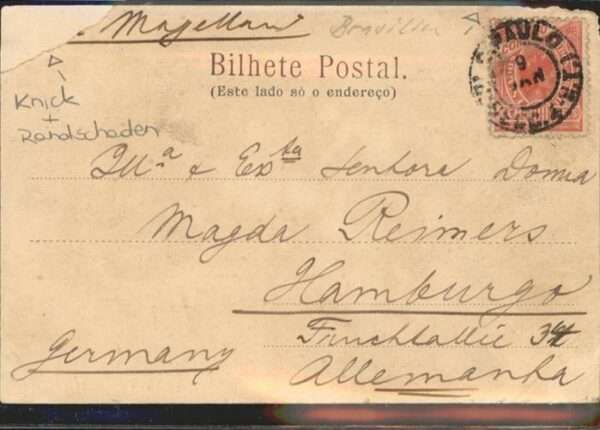 Magellan
Brasilien
Bilhete Postal.
(Este lado só o endereço)
Knick
+
Randschäden
S. PAULO
9
JAN
Ill^ma e Ex^ta Senhora Donna
Magda Reimers
Hamburgo
Fruchtallée 34
Germany
Allemanha